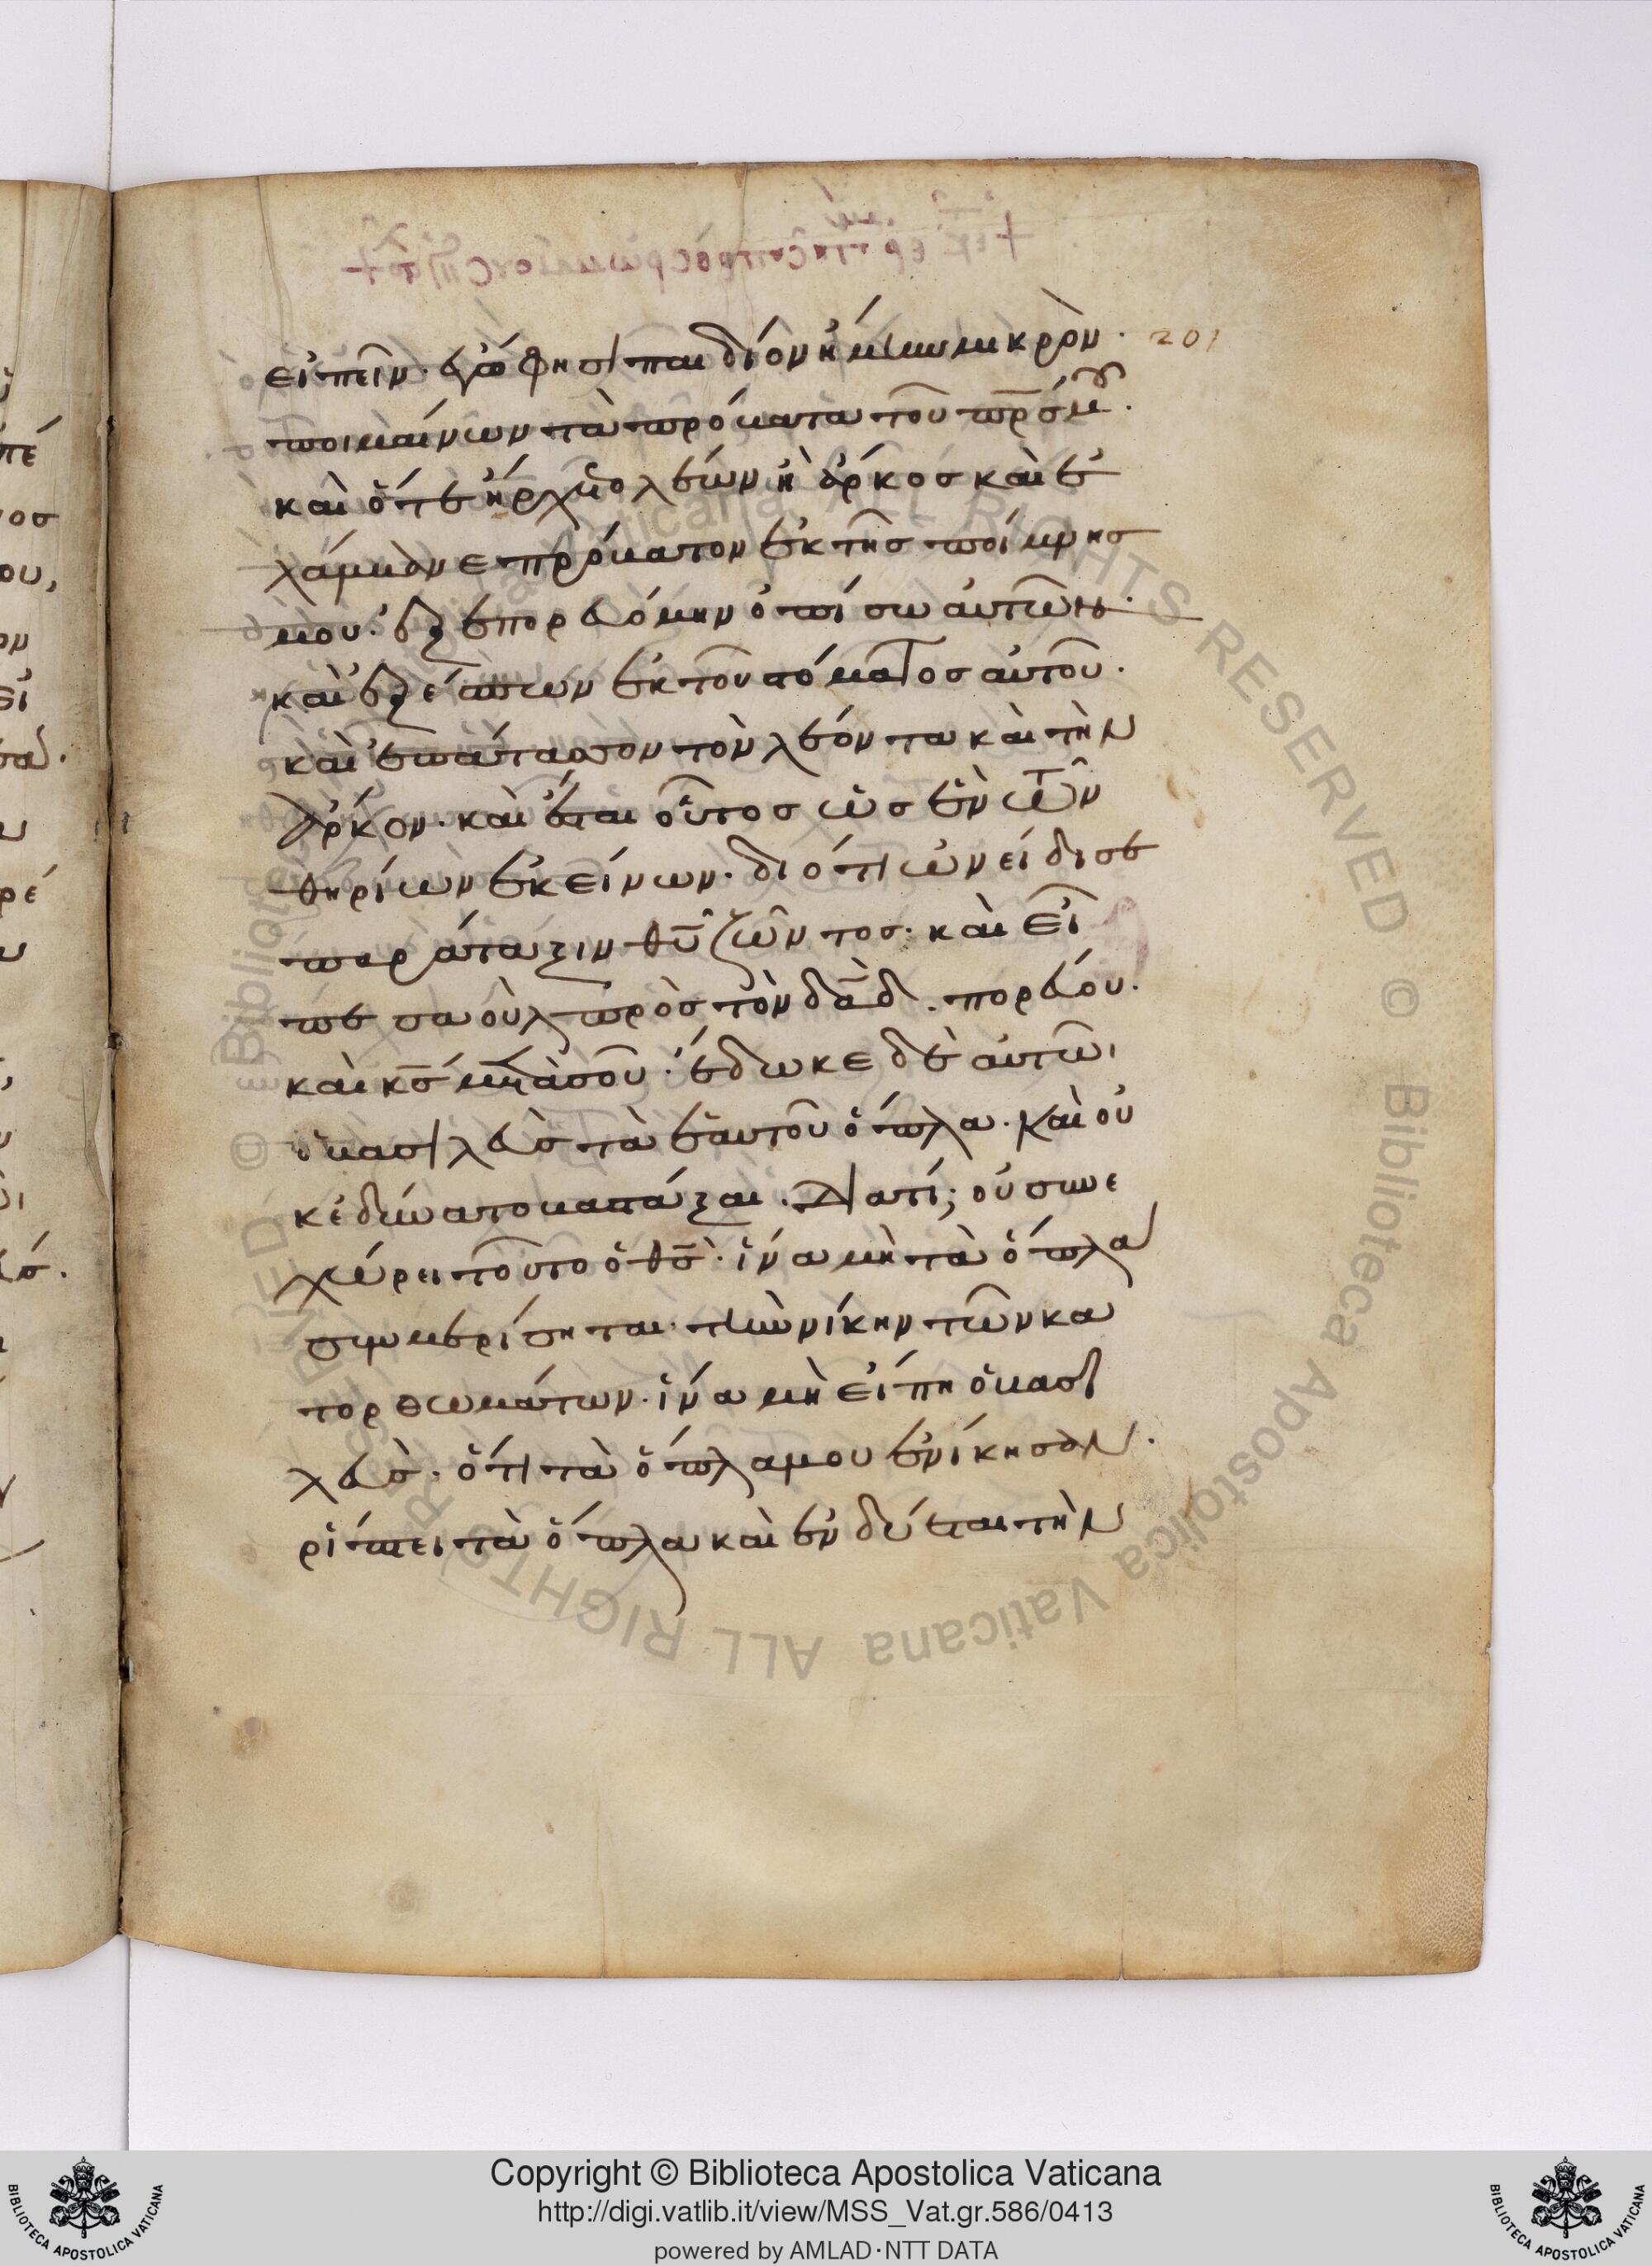 εἰπεῖν. ἐγώ φησι παιδίον ἤμην μικρὸν. 201
ποιμαίνων τὰ πρόβατα τοῦ πρσ μου.
καὶ ὅτε ἤρχετο λέων ἢ ἄρκος καὶ ἐ
λάμβανε πρόβατον ἐκ τῆς ποίμνης
μου. ἐξεπορευόμην ὀπίσω αὐτῶν.
καὶ ἐξέσπων ἐκ τοῦ στόματος αὐτοῦ.
καὶ ἐπάτασσον τὸν λέοντα καὶ τὴν
ἄρκον. καὶ ἔσται οὗτος ὡς ἓν τῶν
θηρίων ἐκείνων. διότι ὠνείδισε
παράταξιν θυ ζῶντος. καὶ εἶ
πε σαοὺλ πρὸς τὸν δαδ. πορεύου.
καὶ κς μετὰ σοῦ. ἔδωκε δὲ αὐτῶι
ὁ βασιλεὺς τὰ ἑαυτοῦ ὅπλα. καὶ οὐ
κ ἐδύνατο βαστάξαι. Διατί; οὐ συνε
χώρει τοῦτο ὁ θς. ἵνα μὴ τὰ ὅπλα
συμμερίσηται τὴν νίκην τῶν κα
τορθωμάτων. ἵνα μὴ εἴπη ὁ βασι
λεὺς. ὅτι τὰ ὅπλα μου ἐνίκησαν.
ρίπτει τὰ ὅπλα καὶ ἐνδύεται τὴν
Copyright © Biblioteca Apostolica Vaticana
http://digi.vatlib.it/view/MSS_Vat.gr.586/0413
powered by AMLAD·NTT DATA